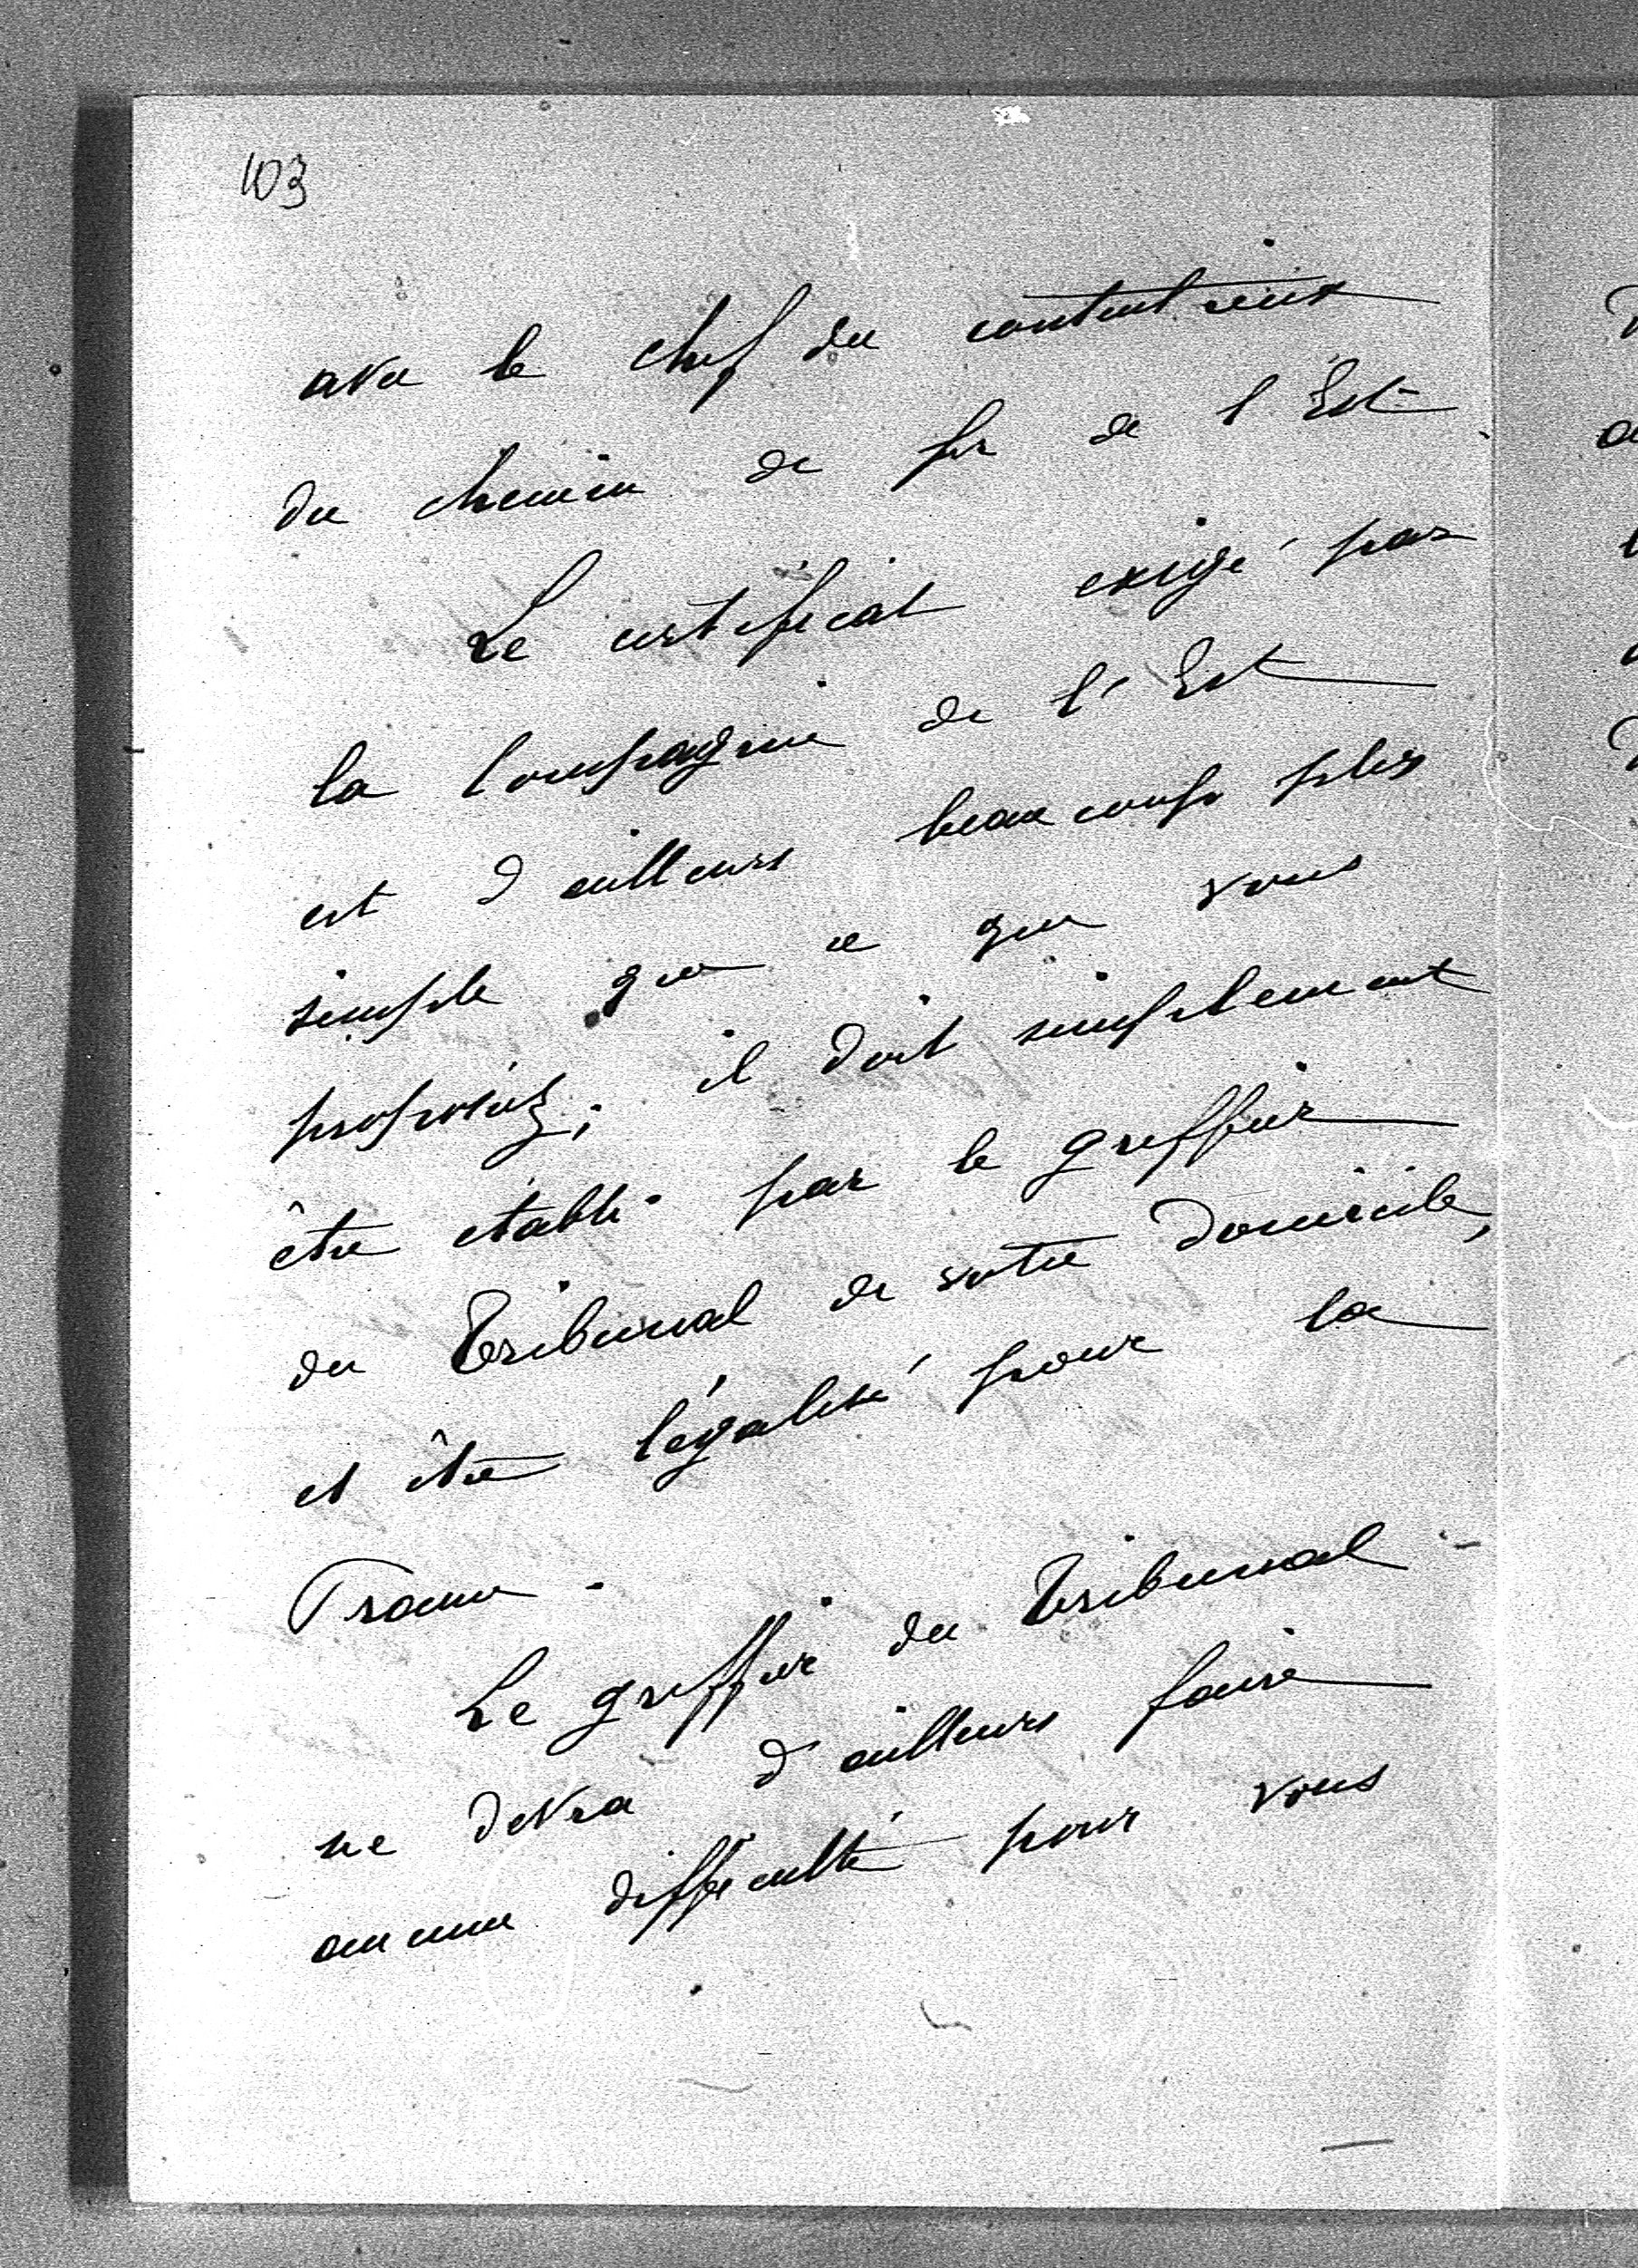 103
avec le chef du contentieux
du chemin de fer de l'Est
Le certificat exigé par
la Compagnie de l'Est
est d'ailleurs beaucoup plus
simple que ce que vous
proposiez; il doit simplement
être établi par le greffier
du Tribunal de votre domicile,
et être légalisé pour la
France.
Le greffier du Tribunal
ne devra d'ailleurs faire
aucune difficulté pour vous